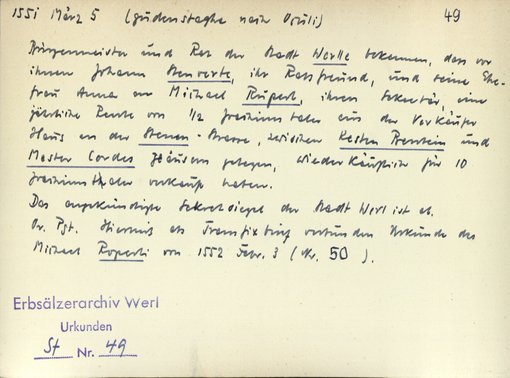 1551 März 5 (gudenstaghe nain Oculi) 49
Bürgermeister und Rat der Stadt Werlle bekennen, dass vor
ihnen Johann, ihr Ratsfreund, und seine Ehe-
frau Anna an Michael Ruperti, ihren Sekretär, eine
jährliche Rente von 1/2 Joachimstaler aus der Verkäufer
Haus an der Stenen-Strasse, zwischen Kersten und
Mester Cordes Häusern gelegen, wiederkäuflich für 10
Joachimsthaler verkauft haben.
Das angekündigte Sekretsiegel der Stadt Werl ist ab.
Or. Pgt. Hiermit als Transfix verbunden Urkunde des
Michael Ruperti von 1552 Febr. 3 (Nr. 50).
Erbsälzerarchiv Werl
Urkunden
St Nr. 49